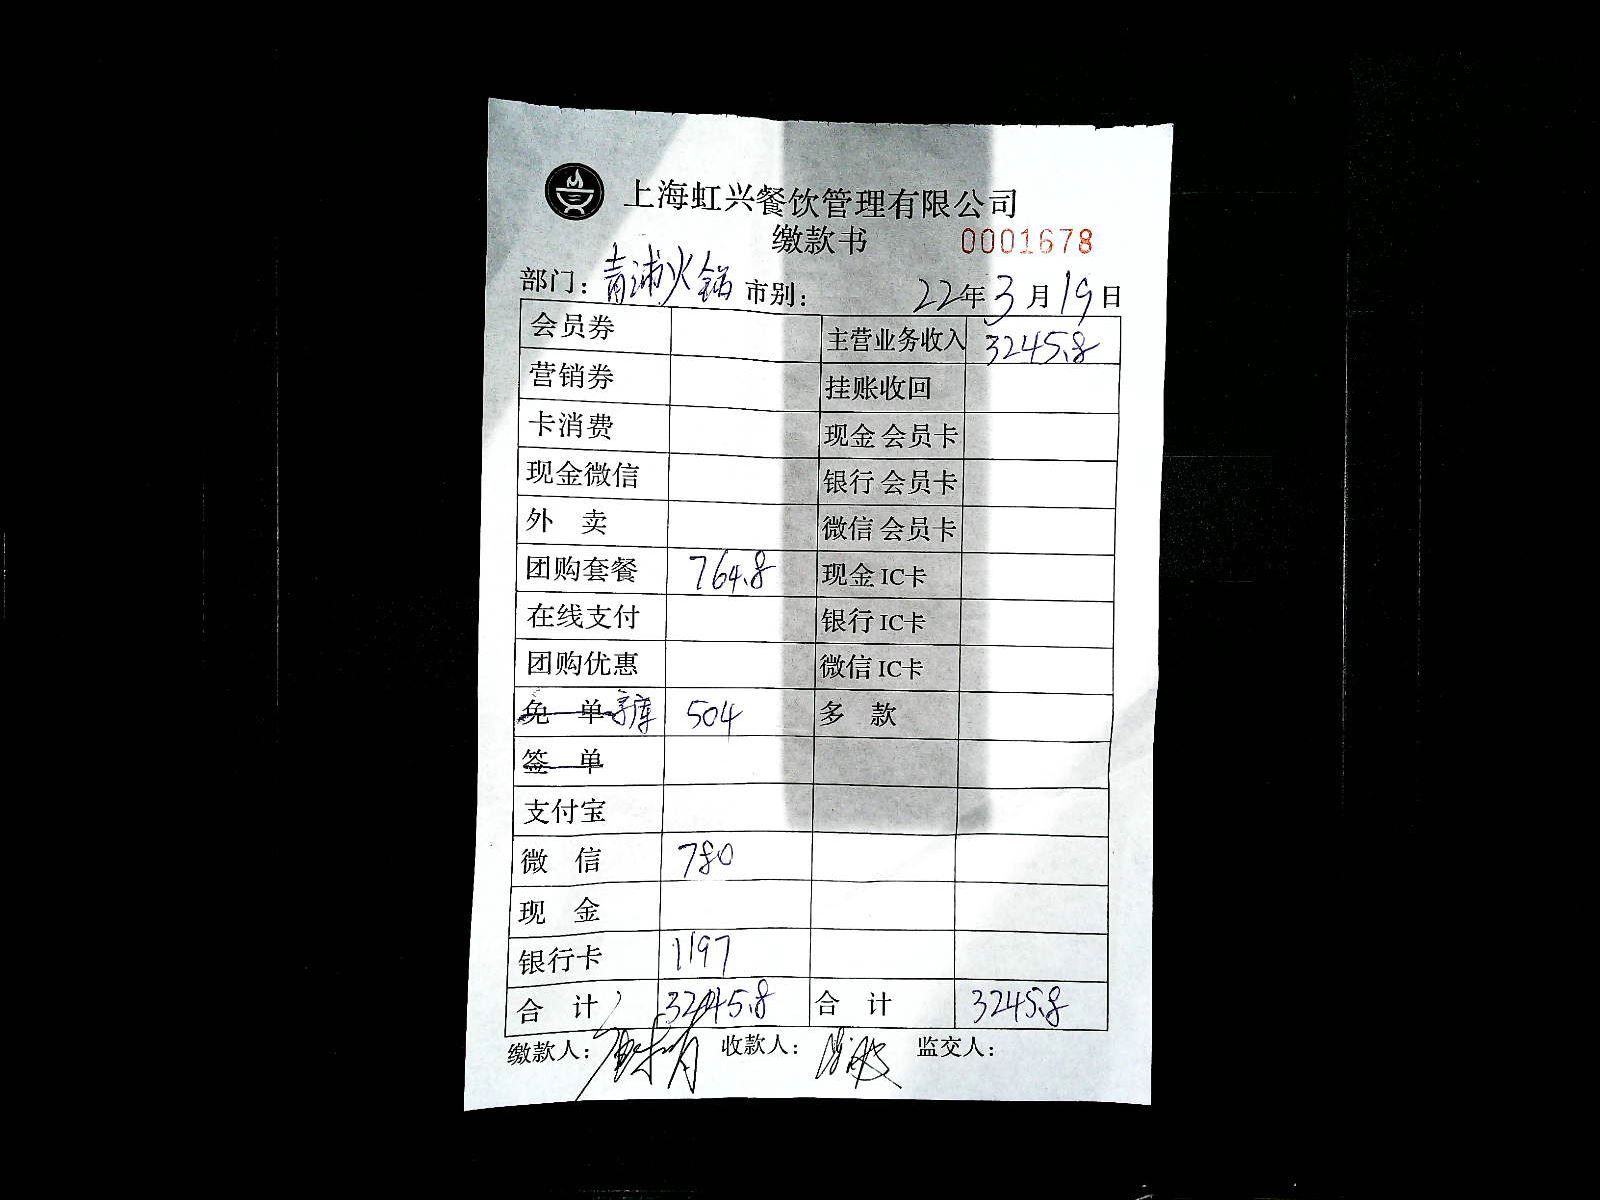 上海虹兴餐饮管理有限公司
缴款书 0001678
部门：青浦火锅 市别： 22年3月19日
会员券 主营业务收入 3245.8
营销券 挂账收回
卡消费 现金 会员卡
现金微信 银行 会员卡
外 卖 微信 会员卡
团购套餐 764.8 现金 IC卡
在线支付 银行 IC卡
团购优惠 微信 IC卡
免 单 504 多 款
签 单
支付宝
微 信 780
现 金
银行卡 1197
合 计 3245.8 合 计 3245.8
缴款人： 收款人： 监交人：